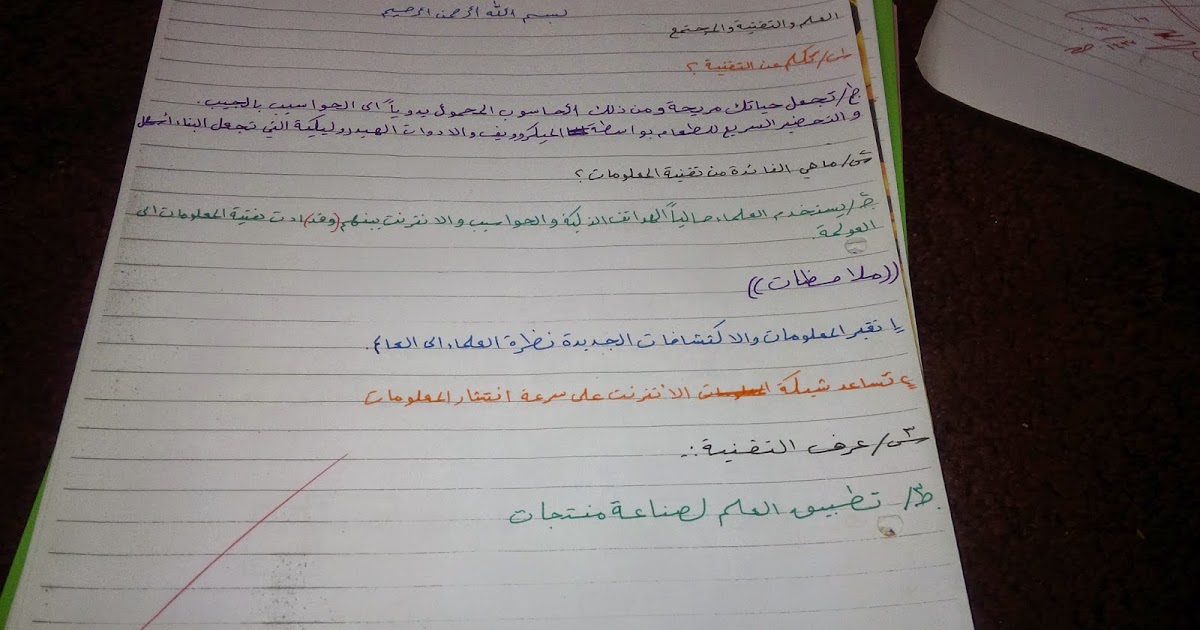 بسم الله الرحمن الرحيم
العلم والتقنية والمجتمع
س١/ تكلم عن التقنية ؟
ج/ تجعل حياتك مريحة ومن ذلك الحاسوب المحمول يدوياً الى الحواسيب بالجيب.
والتحضير السريع للطعام بواسطة الميكروويف والادوات الهيدروليكية التي تجعل البناء اسهل
س٢/ ما هي الفائدة من تقنية المعلومات ؟
ج٢/ يستخدم العلماء حالياً الهواتف الذكية والحواسيب والانترنت بينهم (وقد) ادت تقنية المعلومات الى
العولمة.
((ملاحظات))
١/ تغير المعلومات والاكتشافات الجديدة نظرة العلماء الى العالم.
٢/ تساعد شبكة الانترنت على سرعة انتشار المعلومات
س٣/ عرف التقنية :.
ج٣/ تطبيق العلم لصناعة منتجات